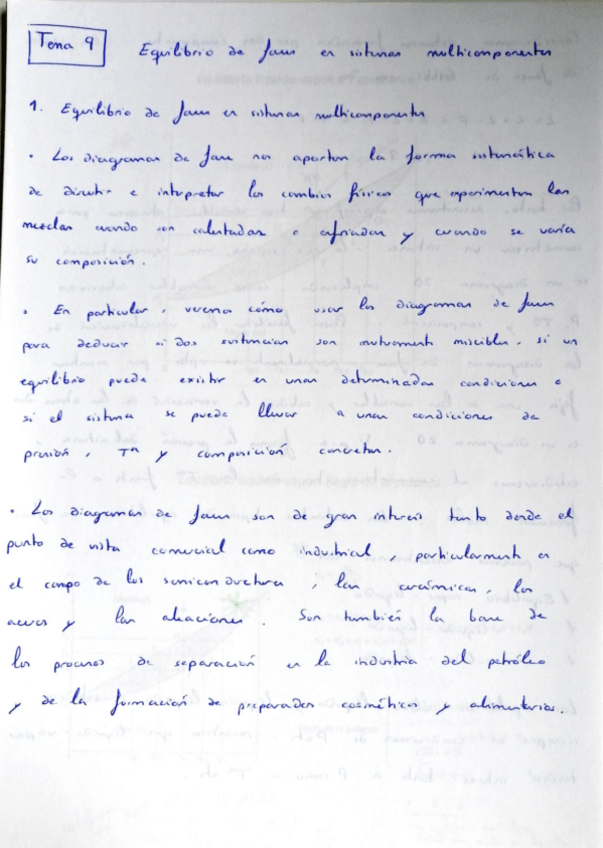 Tema 9 Equilibrio de fases en sistemas multicomponentes
1. Equilibrio de fases en sistemas multicomponentes
· Los diagramas de fase nos aportan la forma sistemática
de discutir e interpretar los cambios físicos que experimentan las
mezclas cuando son calentadas o enfriadas y cuando se varía
su composición.
· En particular, veremos cómo usar los diagramas de fases
para deducir si dos sustancias son mutuamente miscibles, si un
equilibrio puede existir en unas determinadas condiciones o
si el sistema se puede llevar a unas condiciones de
presión, Tª y composición concretas.
· Los diagramas de fases son de gran interés tanto desde el
punto de vista comercial como industrial, particularmente en
el campo de los semiconductores, las cerámicas, los
aceros y las aleaciones. Son también la base de
los procesos de separación en la industria del petróleo
y de la formación de preparados cosméticos y alimentarios.